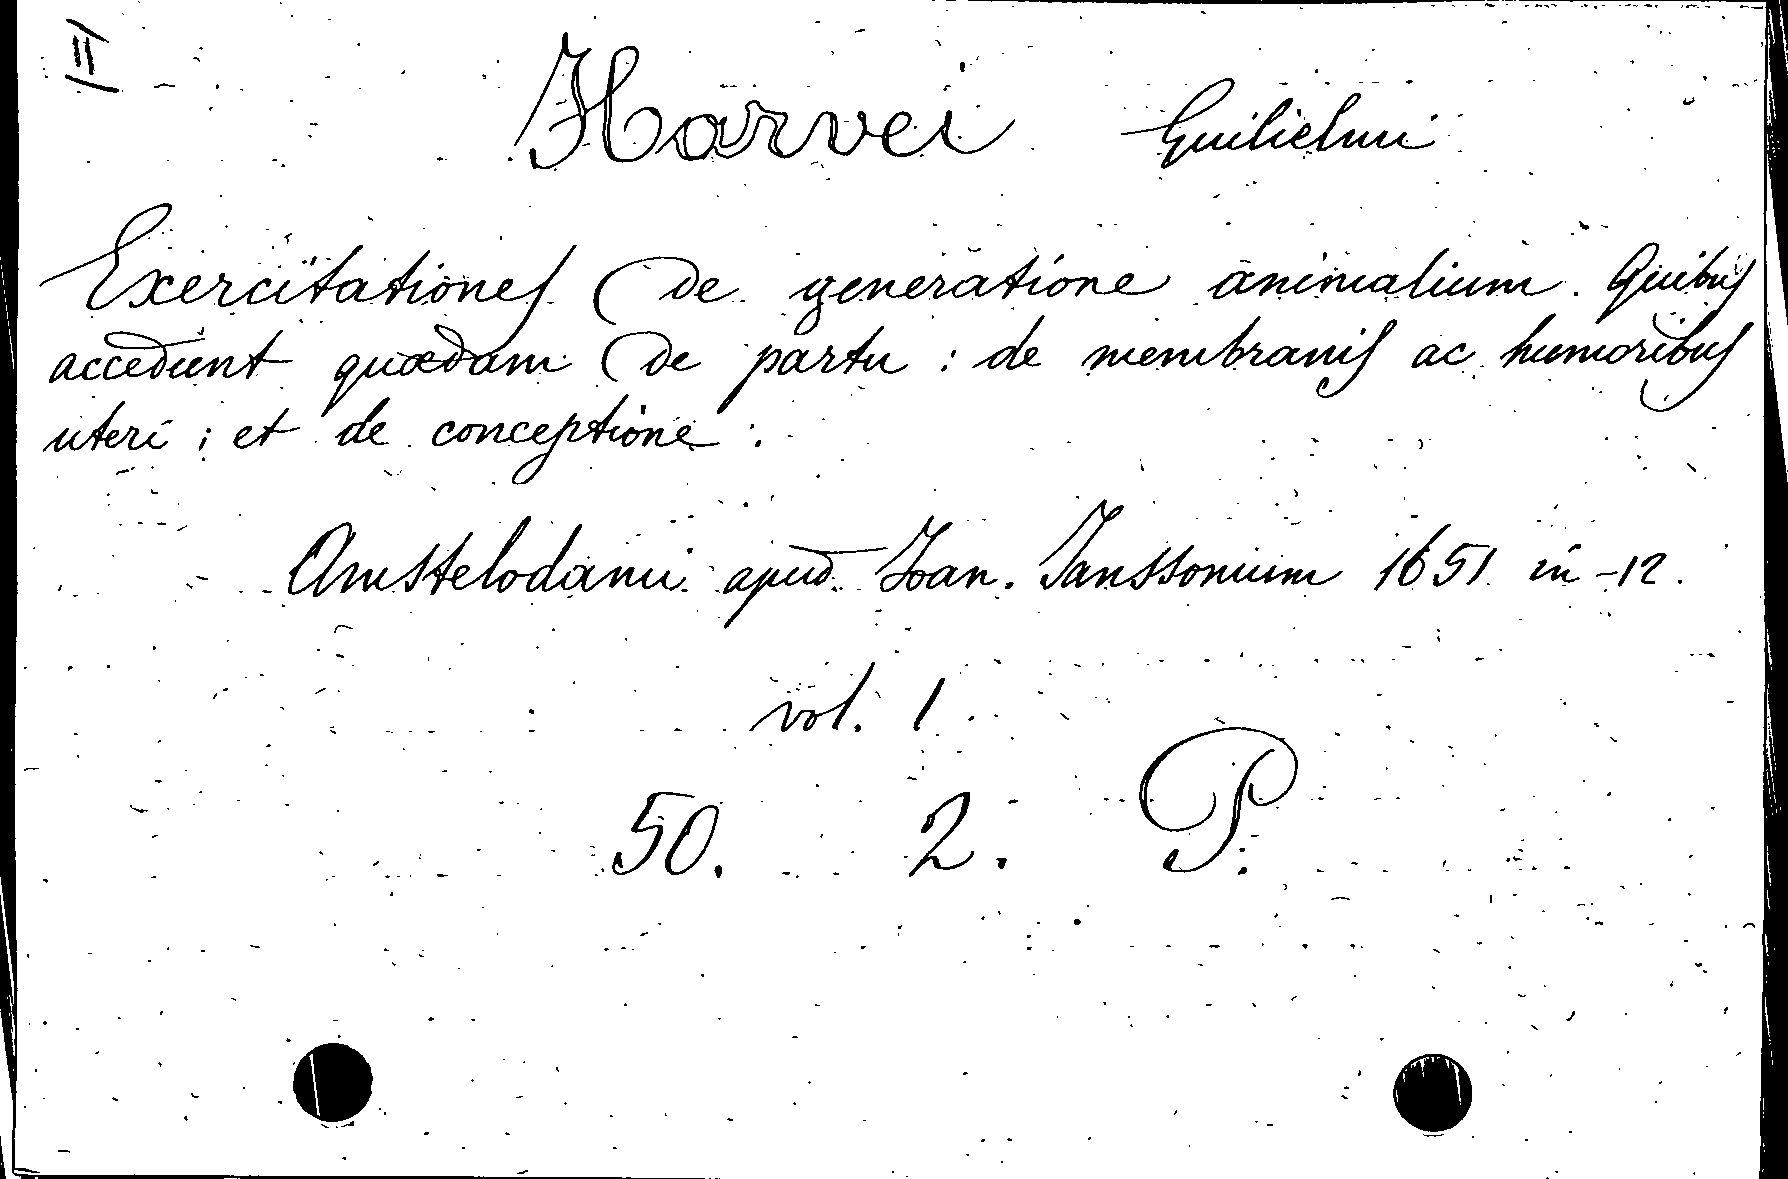 II
Harvei Guilielmi
Exercitationes De generatione animalium. Quibus
accedunt quædam De partu : de membranis ac humoribus
uteri ; et de conceptione .
Amstelodami apud Ioan. Janssonium 1651 in -12.
vol. 1
50. 2. P.